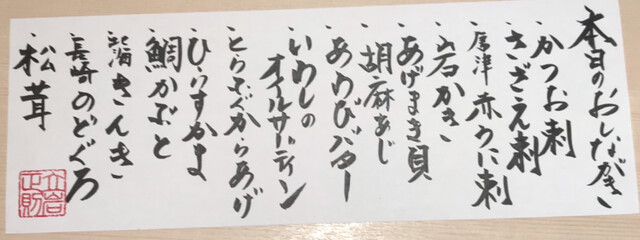 本日のおしながき
・かつお刺
・さざえ刺
・唐津 赤うに刺
・岩かき
・あげまき貝
・胡麻あじ
・あわびバター
・いわしの
オイルサーディン
・とらふぐからあげ
・ひらすかま
・鯛かぶと
・北海きんき
・長崎のどぐろ
・松茸